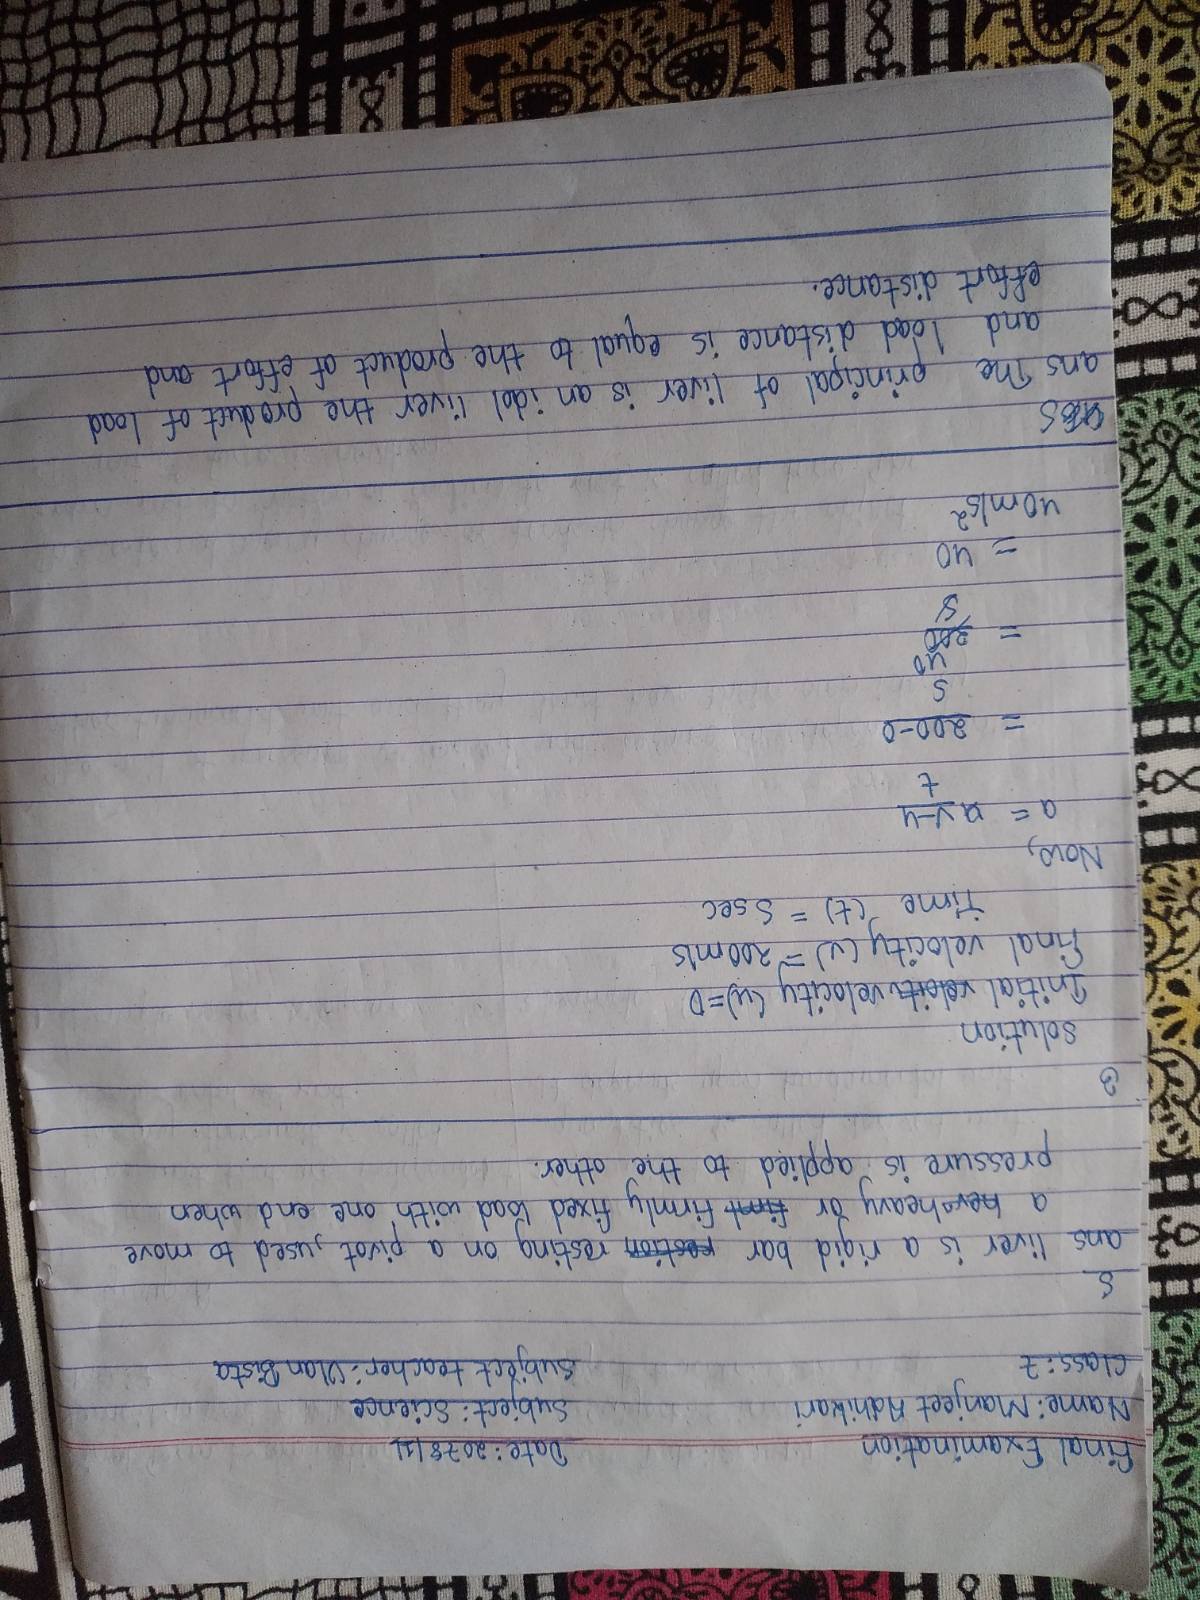 Final Examination Date: 2078/11
Name: Manjeet Adhikari Subject: Science
class: 7 Subject teacher: Ulan Bista
5
ans liver is a rigid bar restion resting on a pivot, used to move
a hev heavy or firmt firmly fixed load with one end when
pressure is applied to the other.
3
solution
Initial veloitiv velocity (u) = 0
Final velocity (v) = 200 m/s
Time (t) = 5 sec
Now,
a = v-u
t
= 200-0
5
40
= 200
5
= 40
40 m/s2
5
ans The principal of liver is an idol liver the product of load
and load distance is equal to the product of effort and
effort distance.